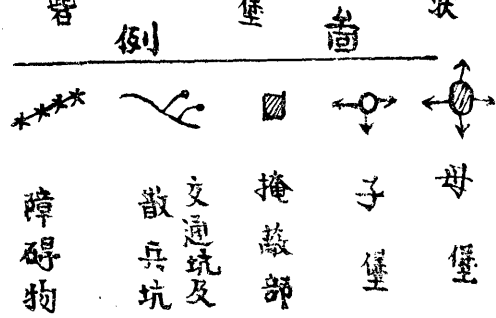 堡
啚例
母堡
子堡
掩蔽部
交通坑及
散兵坑
障碍物